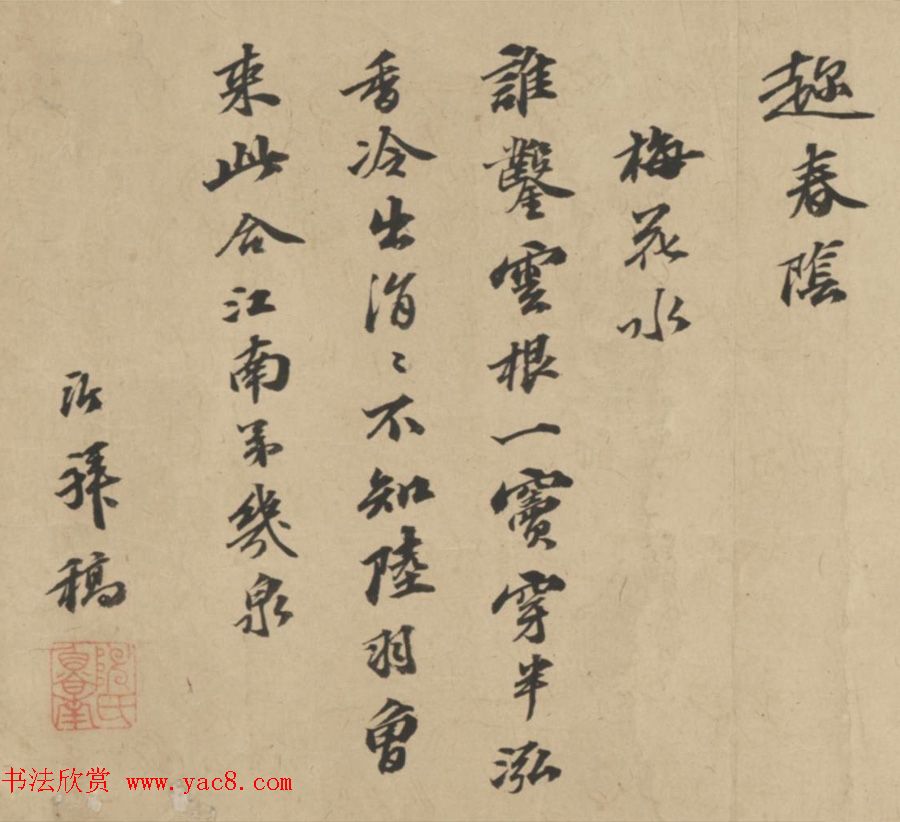 趂春陰
梅花水
誰鑿雲根一竇穿半泓
香冷出涓〻不知陸羽曾
来此合江南第幾泉
拜稿
书法欣赏 www.yac8.com